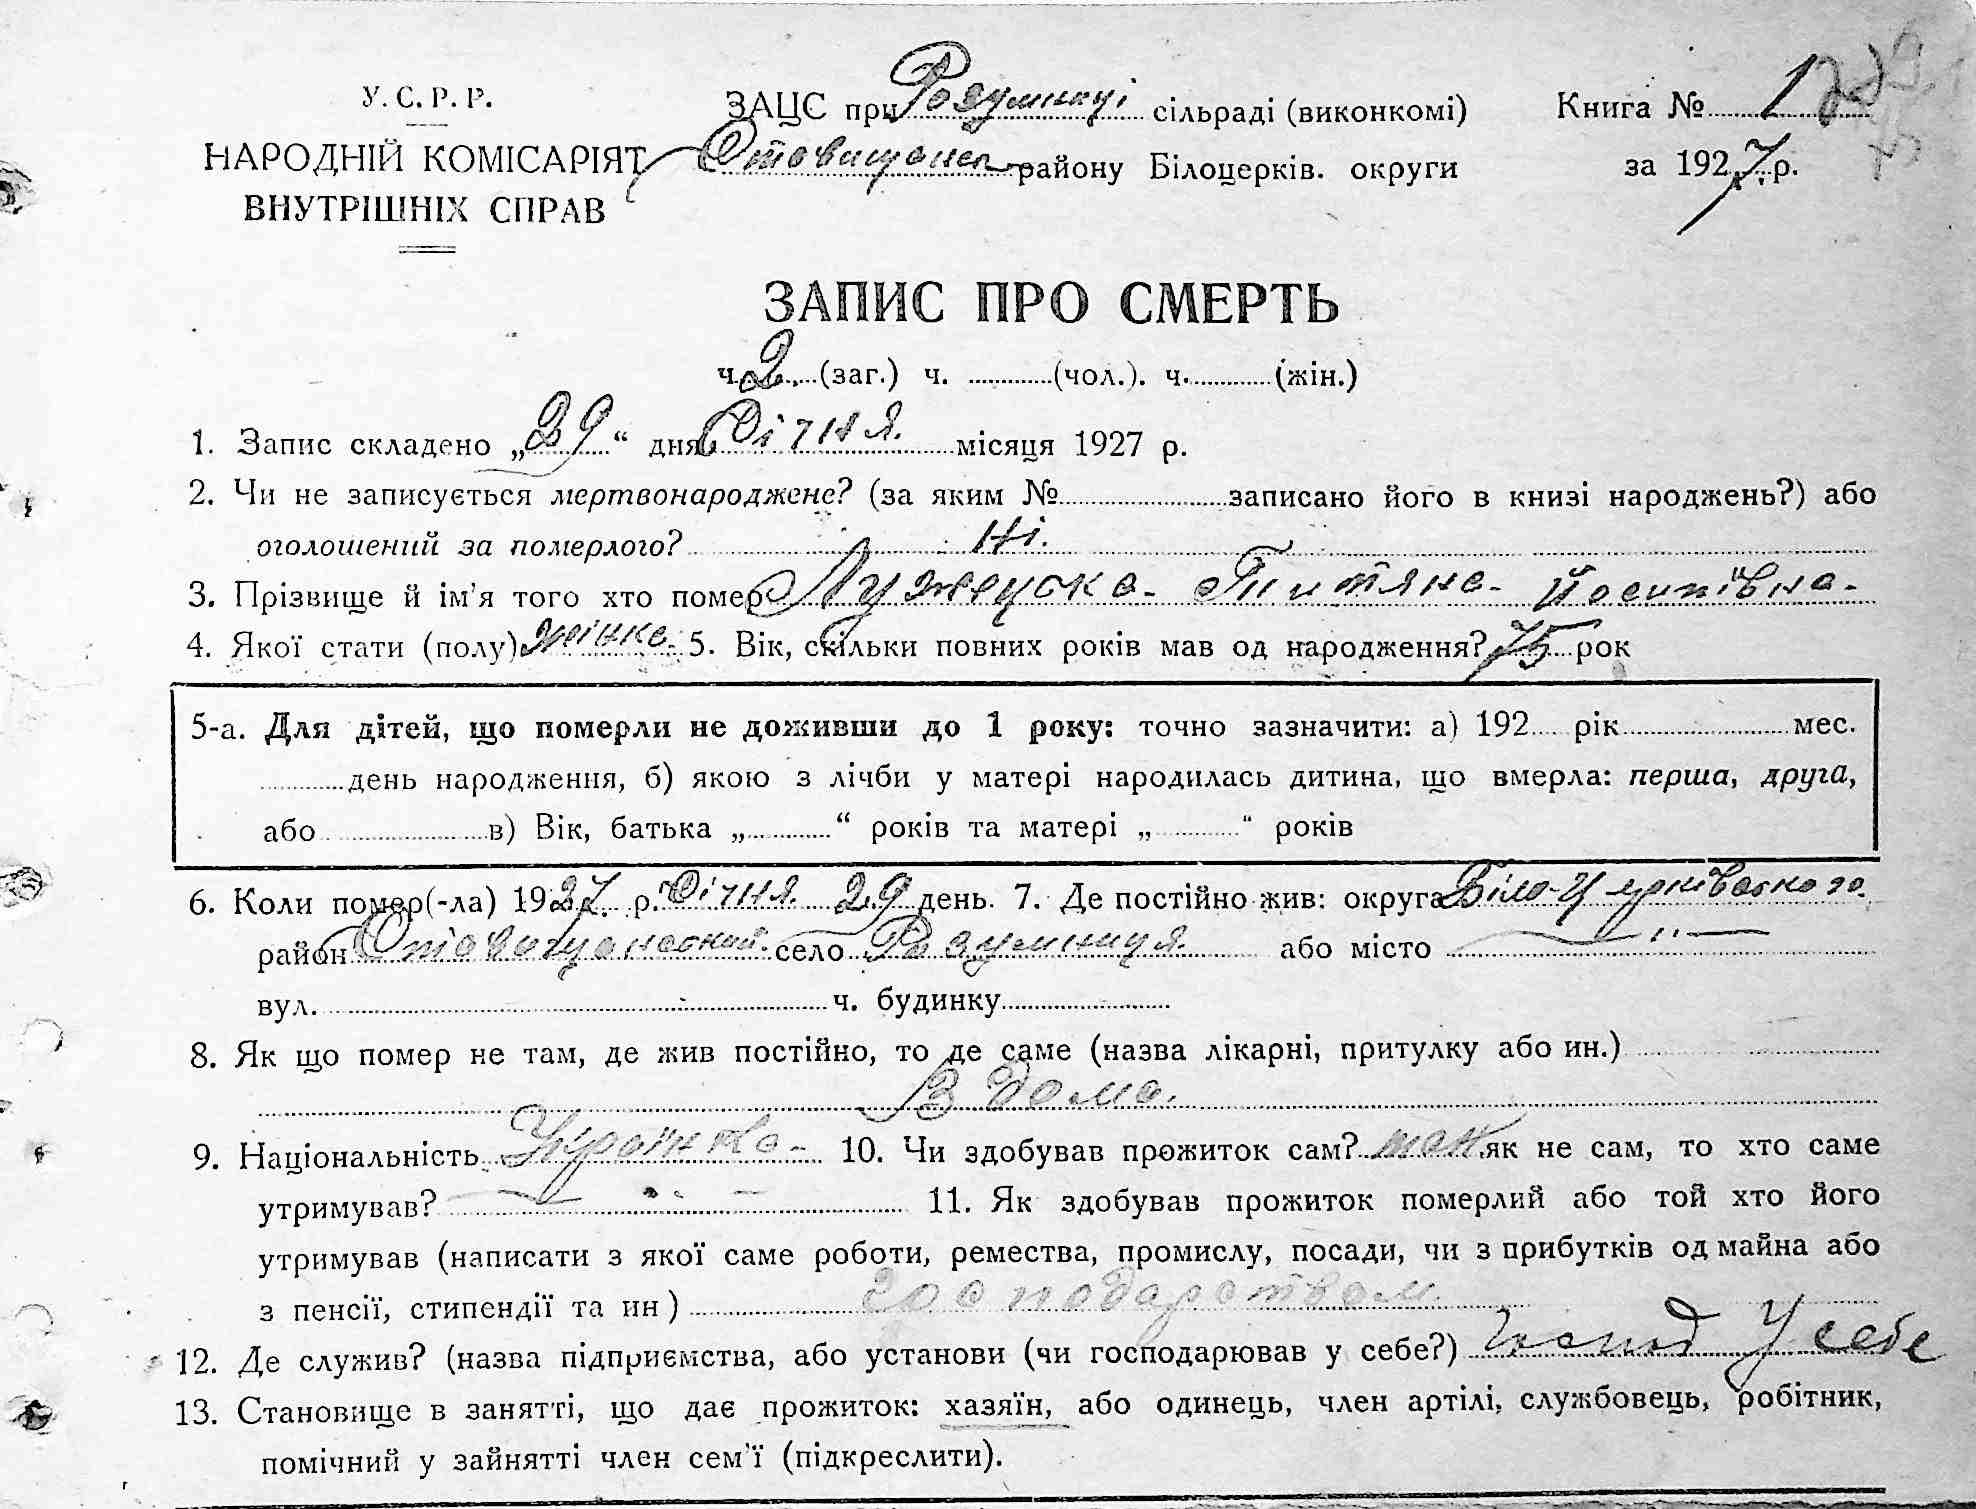 У. С. Р. Р.
НАРОДНІЙ КОМІСАРІЯТ
ВНУТРІШНІХ СПРАВ
ЗАЦС при Розумниці сільраді (виконкомі)
Ставищанск району Білоцерків. округи
Книга № 1
за 1927 р.
ЗАПИС ПРО СМЕРТЬ
ч. 2. (заг.) ч. (чол.). ч. (жін.)
1. Запис складено „29“ дня Січня. місяця 1927 р.
2. Чи не записується мертвонароджене? (за яким № записано його в книзі народжень?) або
оголошений за померлого? Ні.
3. Прізвище й ім'я того хто помер Йосипівна.
4. Якої стати (полу) жінка. 5. Вік, скільки повних років мав од народження? 75 рок
5-а. Для дітей, що померли не доживши до 1 року: точно зазначити: а) 192 рік мес.
день народження, б) якою з лічби у матері народилась дитина, що вмерла: перша, друга,
або в) Вік, батька „ “ років та матері „ “ років
6. Коли помер(-ла) 1927. р. Січня. 29 день. 7. Де постійно жив: округа Біло-Церківського.
район Ставищанский. село Розумниця. або місто — „ —
вул. ч. будинку
8. Як що помер не там, де жив постійно, то де саме (назва лікарні, притулку або ин.)
В дома.
9. Національність Українка - 10. Чи здобував прожиток сам? так як не сам, то хто саме
утримував? 11. Як здобував прожиток померлий або той хто його
утримував (написати з якої саме роботи, ремества, промислу, посади, чи з прибутків од майна або
з пенсії, стипендії та ин) господарством.
12. Де служив? (назва підприємства, або установи (чи господарював у себе?) господ У себе
13. Становище в занятті, що дає прожиток: хазяїн, або одинець, член артілі, службовець, робітник,
помічний у зайнятті член сем'ї (підкреслити).